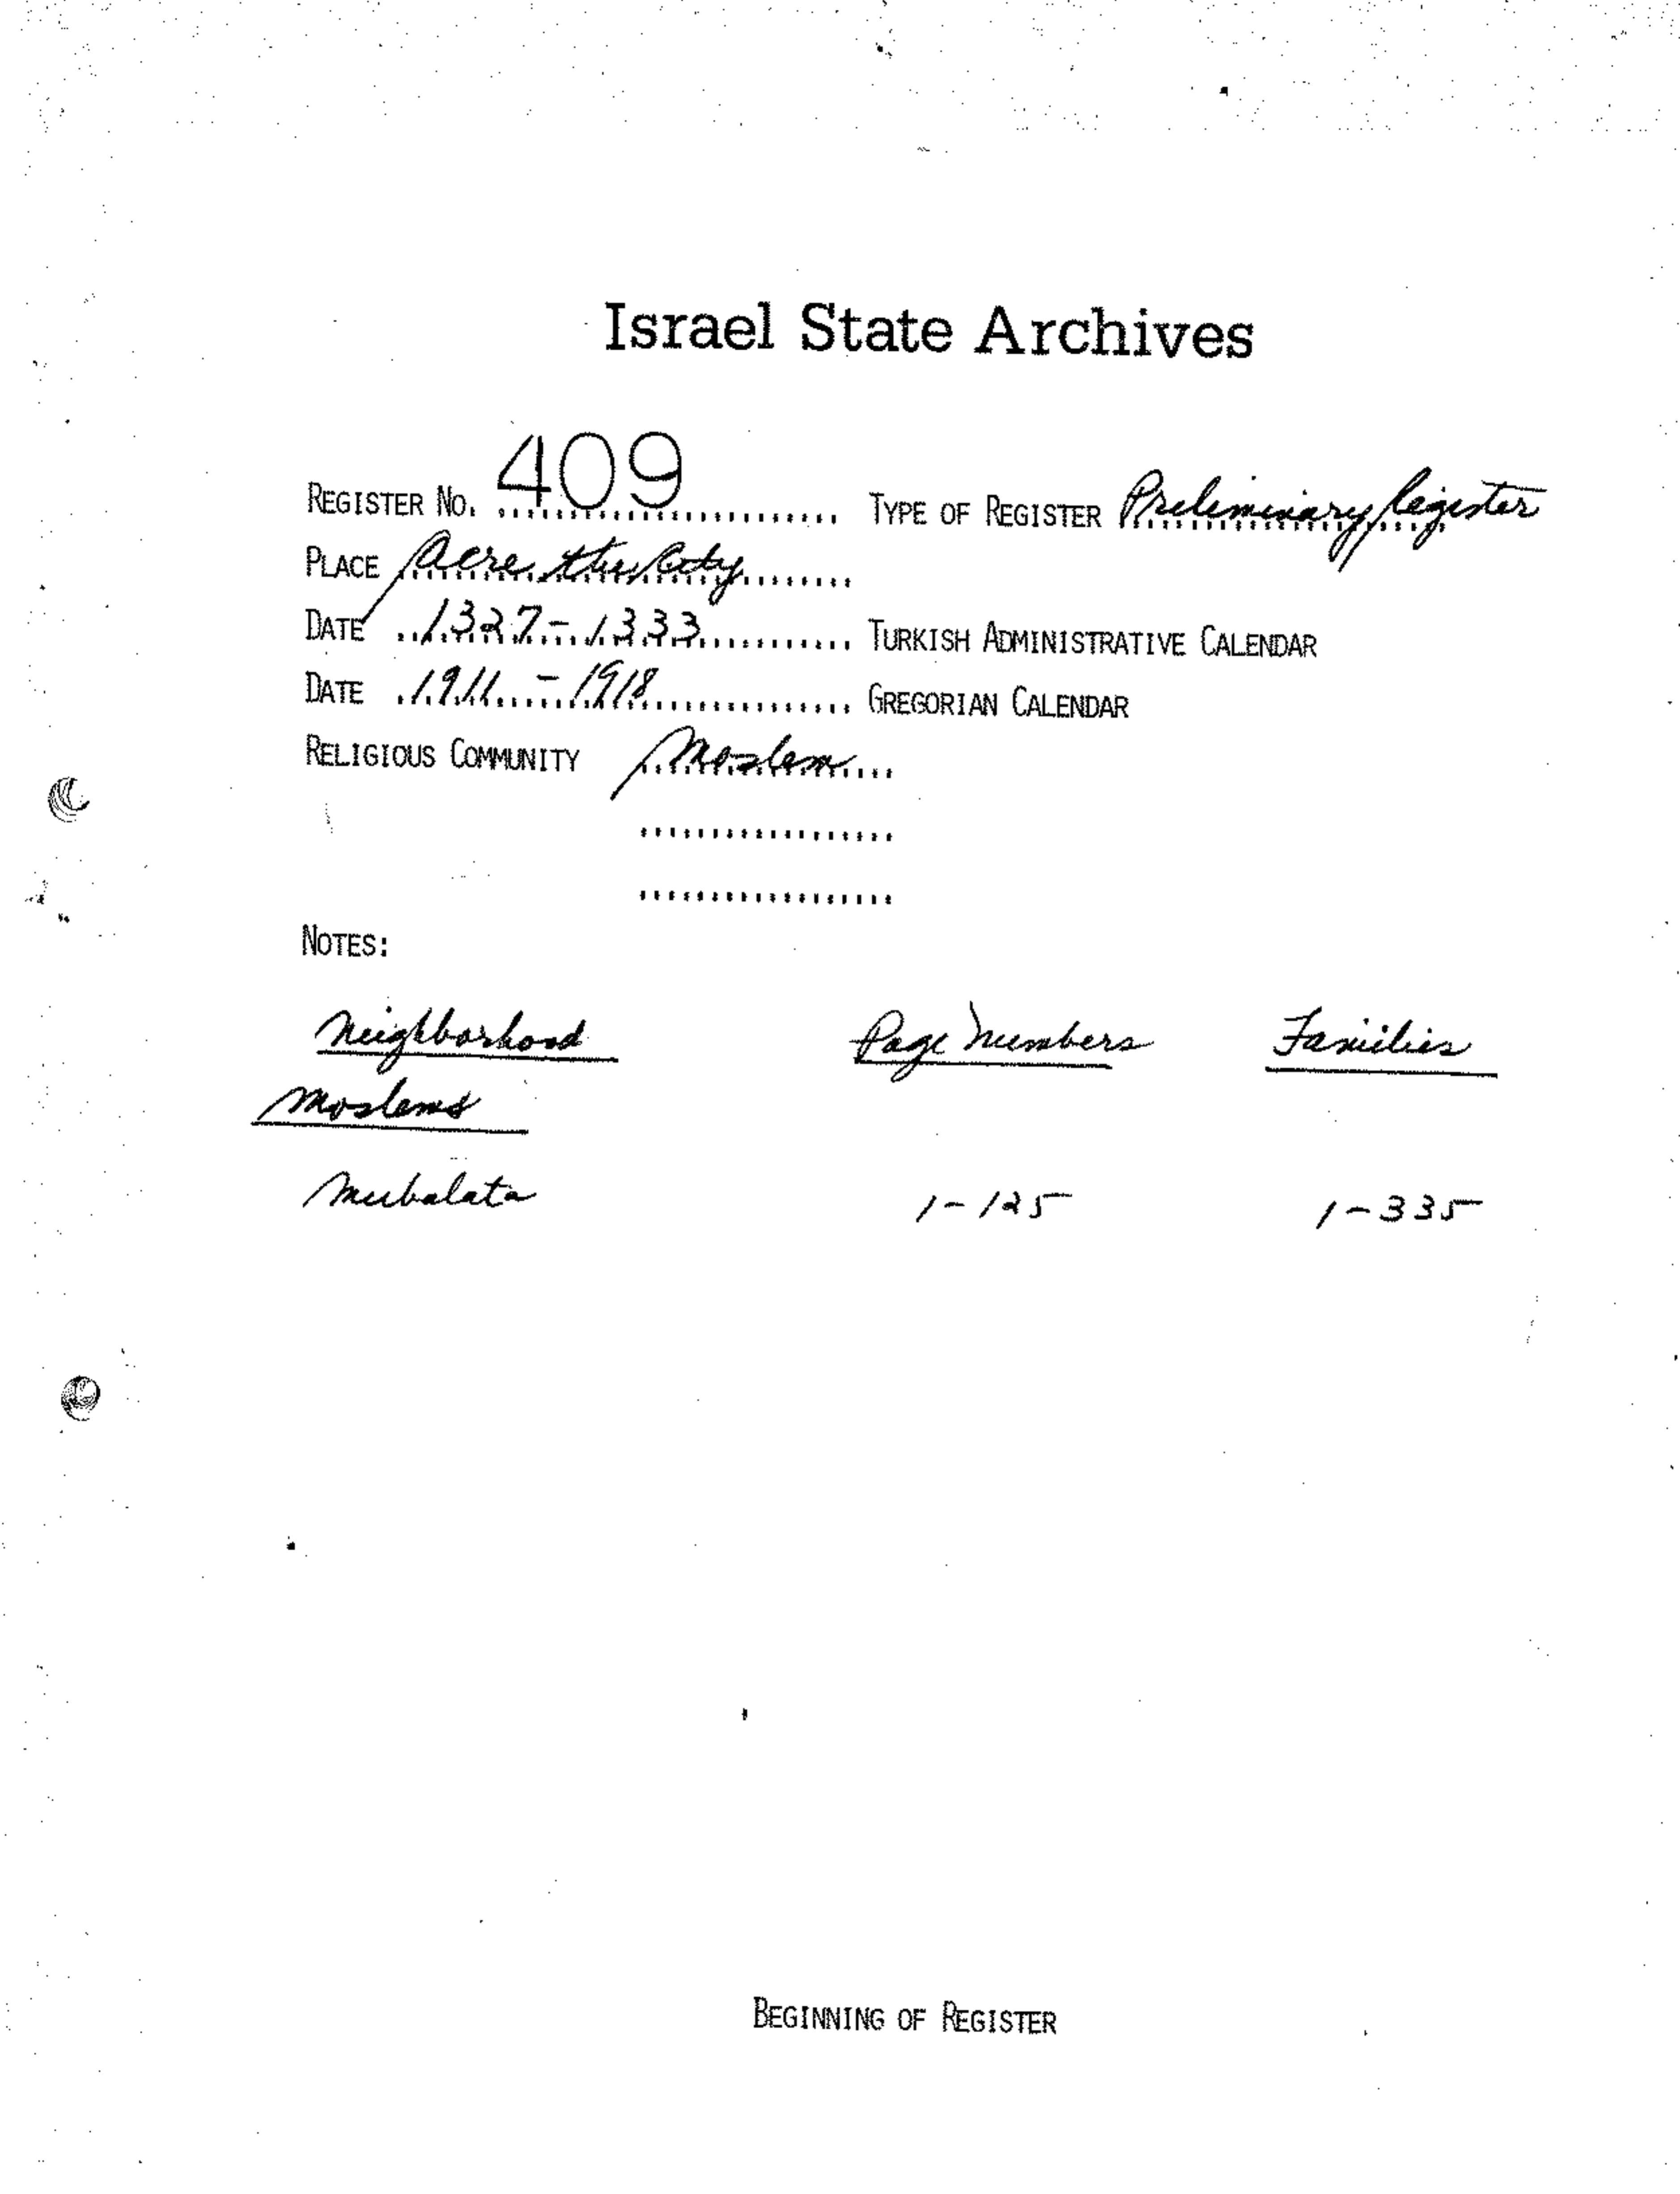 Israel State Archives
REGISTER No. 409 TYPE OF REGISTER Preliminary Register
PLACE Acre the City
DATE 1327-1333 TURKISH ADMINISTRATIVE CALENDAR
DATE 1911-1918 GREGORIAN CALENDAR
RELIGIOUS COMMUNITY Moslem
NOTES:
Neighborhood Page Numbers Families
Moslems
Mubalata 1-125 1-335
BEGINNING OF REGISTER